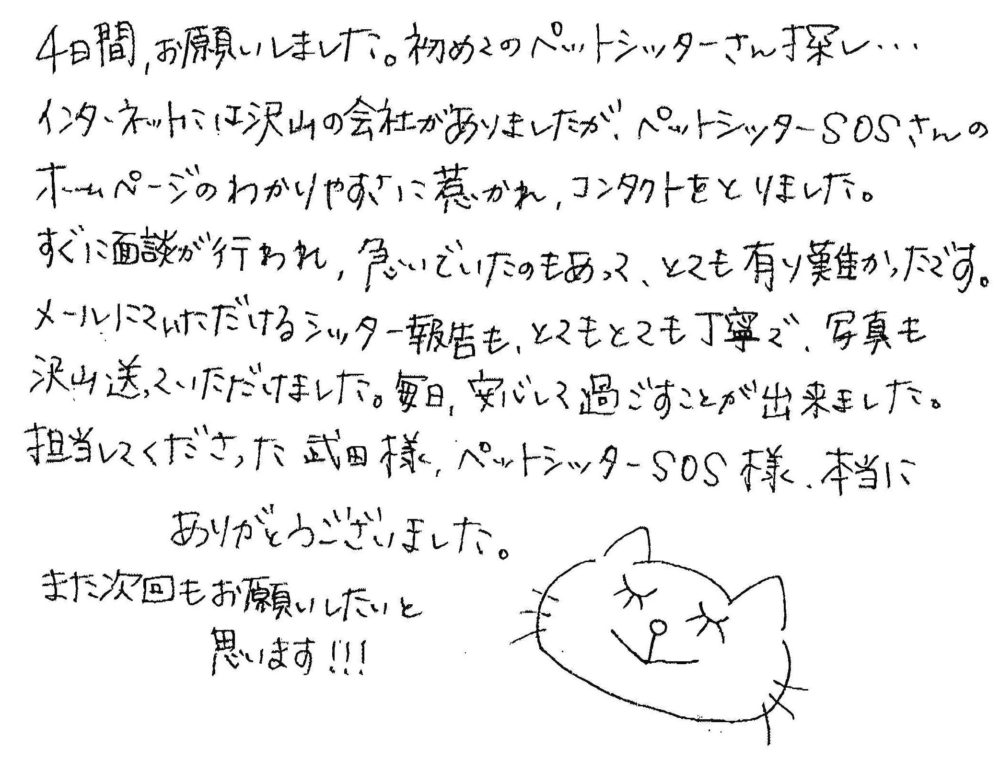 4日間,お願いしました。初めてのペットシッターさん探し…
インターネットには沢山の会社がありましたが、ペットシッターSOSさんの
ホームページのわかりやすさに惹かれ,コンタクトをとりました。
すぐに面談が行われ,急いでいたのもあって、とても有り難かったです。
メールにていただけるシッター報告も、とてもとても丁寧で、写真も
沢山送っていただけました。毎日,安心して過ごすことが出来ました。
担当してくださった武田様,ペットシッターSOS様、本当に
ありがとうございました。
また次回もお願いしたいと
思います!!!